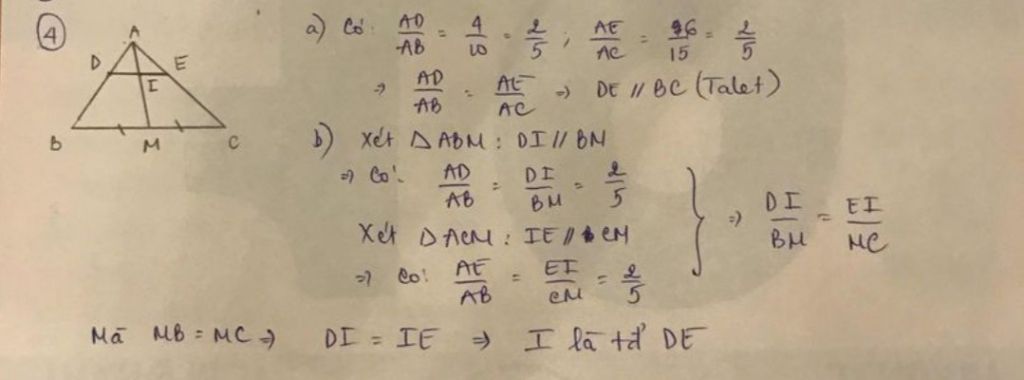 4
A
D E
I
B M C
a) Có: AD/AB = 4/10 = 2/5 ; AE/AC = 6/15 = 2/5
=> AD/AB = AE/AC => DE // BC (Talet)
b) Xét △ABM : DI // BM
=> Có: AD/AB = DI/BM = 2/5
Xét △ACM : IE // CM
=> Có: AE/AB = EI/CM = 2/5
} => DI/BM = EI/MC
Mà MB = MC => DI = IE => I là tđ DE